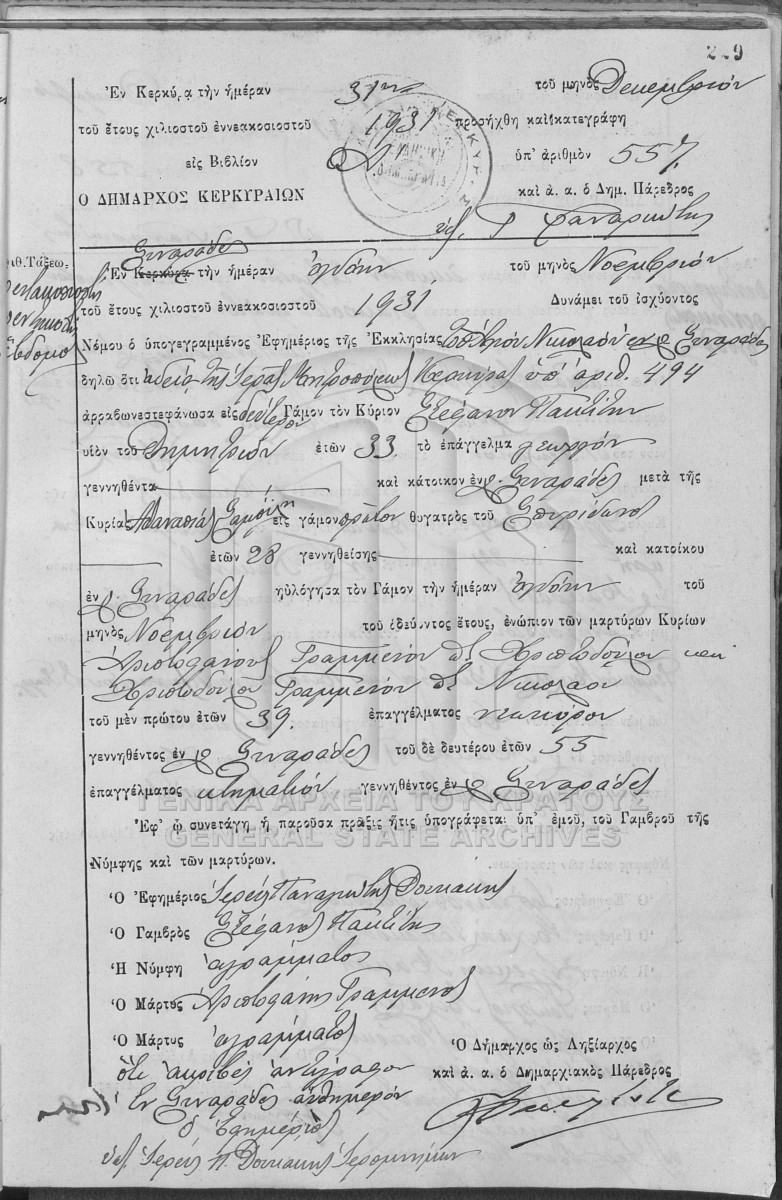 229
Ἐν Κερκύρᾳ τὴν ἡμέραν 31ην τοῦ μηνὸς Δεκεμβρίου
τοῦ ἔτους χιλιοστοῦ ἐννεακοσιοστοῦ 1931 προσήχθη καὶ κατεγράφη
εἰς Βιβλίον ὑπ' ἀριθμὸν 557
Ο ΔΗΜΑΡΧΟΣ ΚΕΡΚΥΡΑΙΩΝ καὶ ἀ. α. ὁ Δημ. Πάρεδρος
Σιναράδες
Ἀριθ. Τάξεω. Ἐν Κερκύρᾳ τὴν ἡμέραν ὀγδόην τοῦ μηνὸς Νοεμβρίου
πεντακοσιοστὴ
πεντηκοστὴ
ἑβδόμη
τοῦ ἔτους χιλιοστοῦ ἐννεακοσιοστοῦ 1931 Δυνάμει τοῦ ἰσχύοντος
Νόμου ὁ ὑπογεγραμμένος Ἐφημέριος τῆς Ἐκκλησίας Νικολάου ἐν Σιναράδες
δηλῶ ὅτι ἀδείᾳ τῆς Ἱερᾶς Μητροπόλεως Κερκύρας ὑπ' ἀριθ. 494
ἀρραβωνεστεφάνωσα εἰς δεύτερον Γάμον τὸν Κύριον Στέφανον Πακτίτην
υἱὸν τοῦ Δημητρίου ἐτῶν 33 τὸ ἐπάγγελμα γεωργόν
γεννηθέντα καὶ κάτοικον ἐν Σιναράδες μετὰ τῆς
Κυρίας Ἀθανασίας εἰς γάμον πρῶτον θυγατρὸς τοῦ Σπυρίδωνος
ἐτῶν 28 γεννηθείσης καὶ κατοίκου
ἐν Σιναράδες ηὐλόγησα τὸν Γάμον τὴν ἡμέραν ὀγδόην τοῦ
μηνὸς Νοεμβρίου τοῦ ὁδεύοντος ἔτους, ἐνώπιον τῶν μαρτύρων Κυρίων
Ἀριστοφάνους Γραμμένου Χριστοδούλου καὶ
Χριστοδούλου Γραμμένου Νικολάου
τοῦ μὲν πρώτου ἐτῶν 39 ἐπαγγέλματος
γεννηθέντος ἐν Σιναράδες τοῦ δὲ δευτέρου ἐτῶν 55
ἐπαγγέλματος κτηματίου γεννηθέντος ἐν Σιναράδες
Ἐφ' ᾧ συνετάγη ἡ παροῦσα πρᾶξις ἥτις ὑπογράφεται ὑπ' ἐμοῦ, τοῦ Γαμβροῦ τῆς
Νύμφης καὶ τῶν μαρτύρων.
ΓΕΝΙΚΑ ΑΡΧΕΙΑ ΤΟΥ ΚΡΑΤΟΥΣ
GENERAL STATE ARCHIVES
Ὁ Ἐφημέριος Ἱερεὺς Παναγιώτης Δουκάκης
Ὁ Γαμβρὸς Στέφανος Πακτίτης
Ἡ Νύμφη ἀγράμματος
Ὁ Μάρτυς Ἀριστοφάνης Γραμμένος
Ὁ Μάρτυς ἀγράμματος
Ὁ Δήμαρχος ὡς Ληξίαρχος
καὶ ἀ. α. ὁ Δημαρχιακὸς Πάρεδρος
ὅτι ἀκριβὲς ἀντίγραφον
Ἐν Σιναράδες αὐθημερόν
ὁ Ἐφημέριος
Ἱερεὺς Π. Δουκάκης